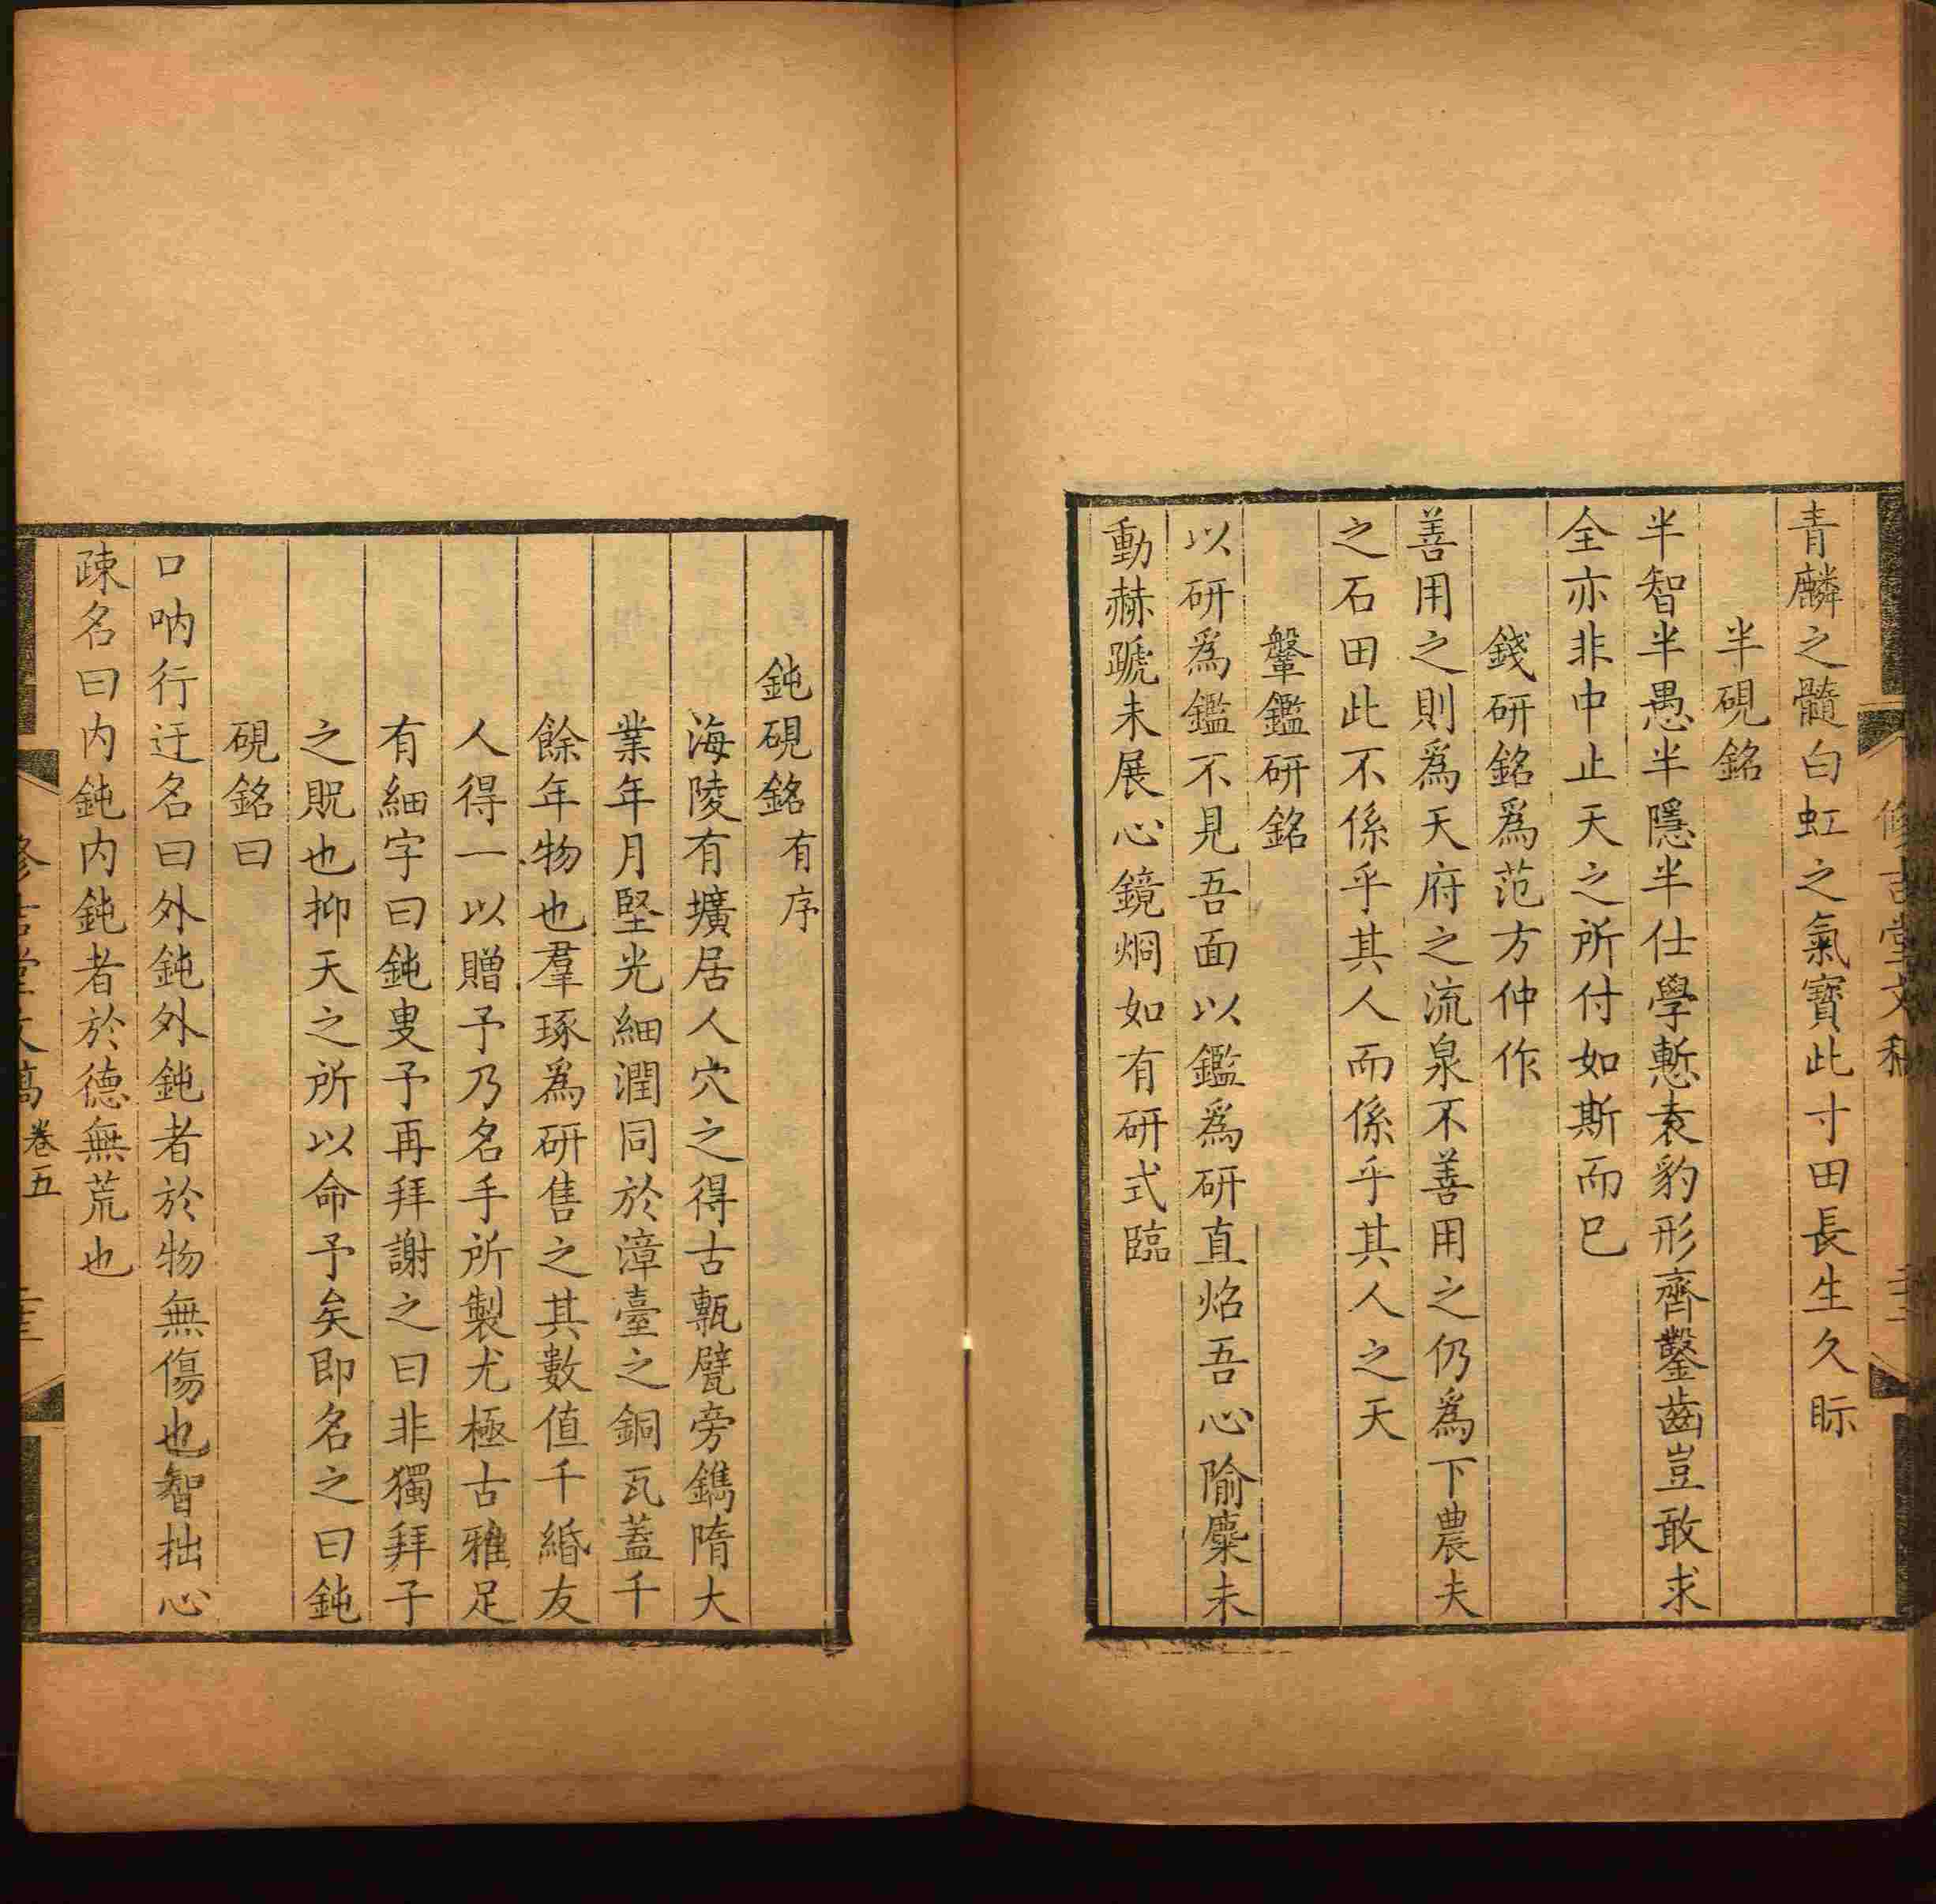 青麟之髓白虹之氣寶此寸田長生久眎
半硯銘
半智半愚半隱半仕學慙袁豹形齊鑿齒豈敢求
全亦非中止天之所付如斯而已
錢研銘爲范方仲作
善用之則爲天府之流泉不善用之仍爲下農夫
之石田此不係乎其人而係乎其人之天
鞶鑑研銘
以研爲鑑不見吾面以鑑爲研直焰吾心隃麋未
動赫蹏未展心鏡烱如有研式臨
鈍硯銘有序
海陵有壙居人穴之得古甎甓旁鐫隋大
業年月堅光細潤同於漳臺之銅瓦蓋千
餘年物也羣琢爲研售之其數值千緡友
人得一以贈予乃名手所製尤極古雅足
有細字曰鈍叟予再拜謝之曰非獨拜子
之貺也抑天之所以命予矣即名之曰鈍
硯銘曰
口吶行迂名曰外鈍外鈍者於物無傷也智拙心
疎名曰内鈍内鈍者於德無荒也
卷五